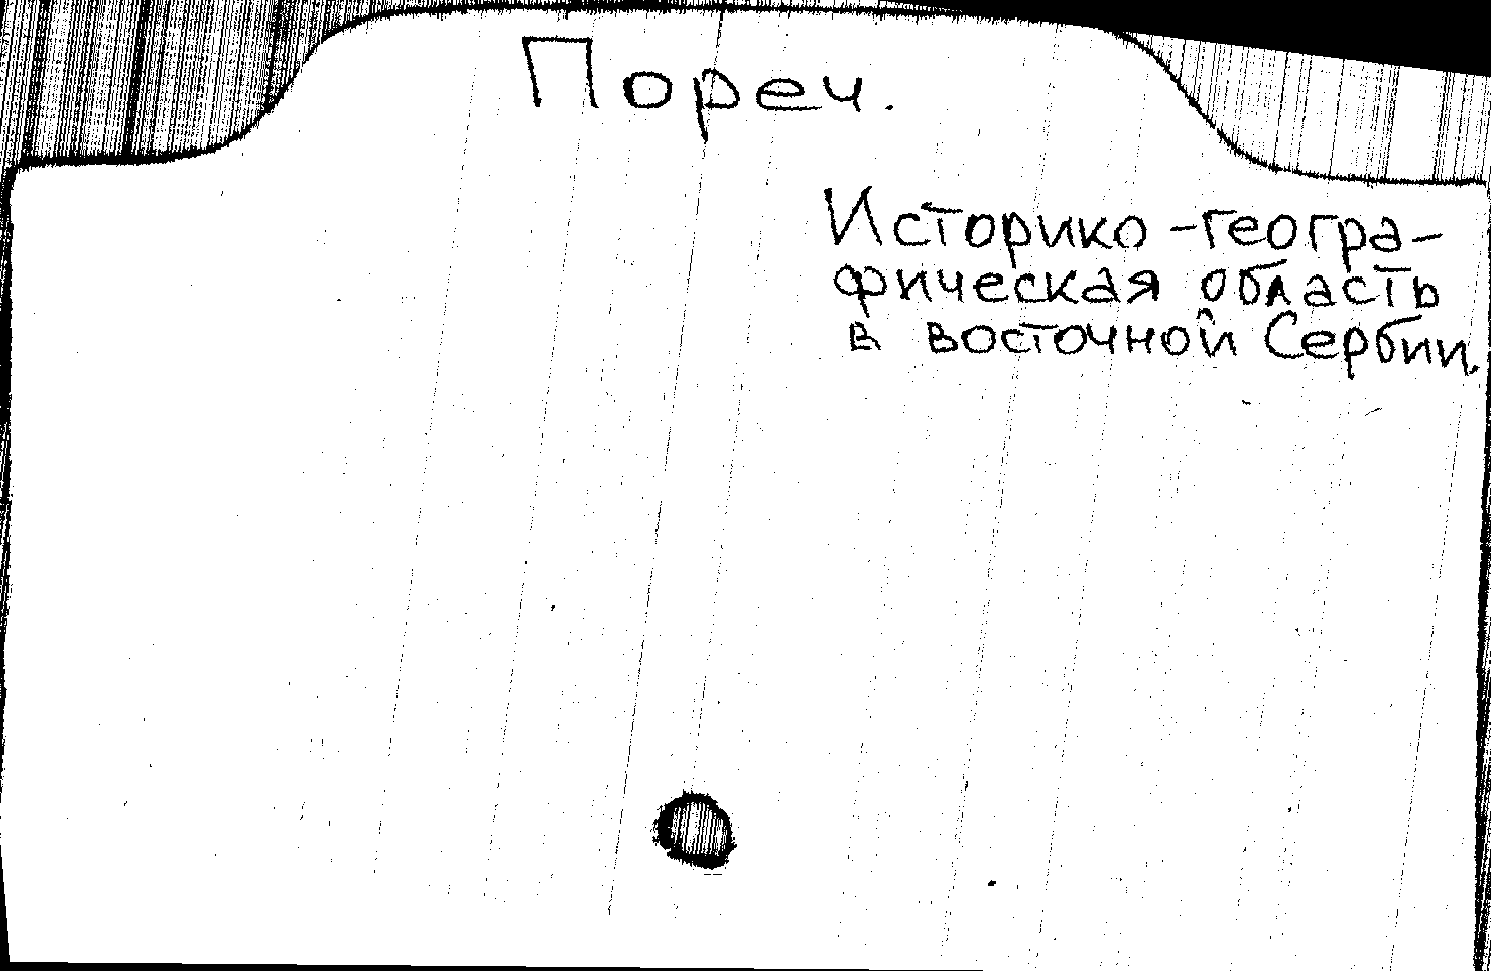 Пореч.
Историко-геогра-
фическая область
в восточной Сербии.